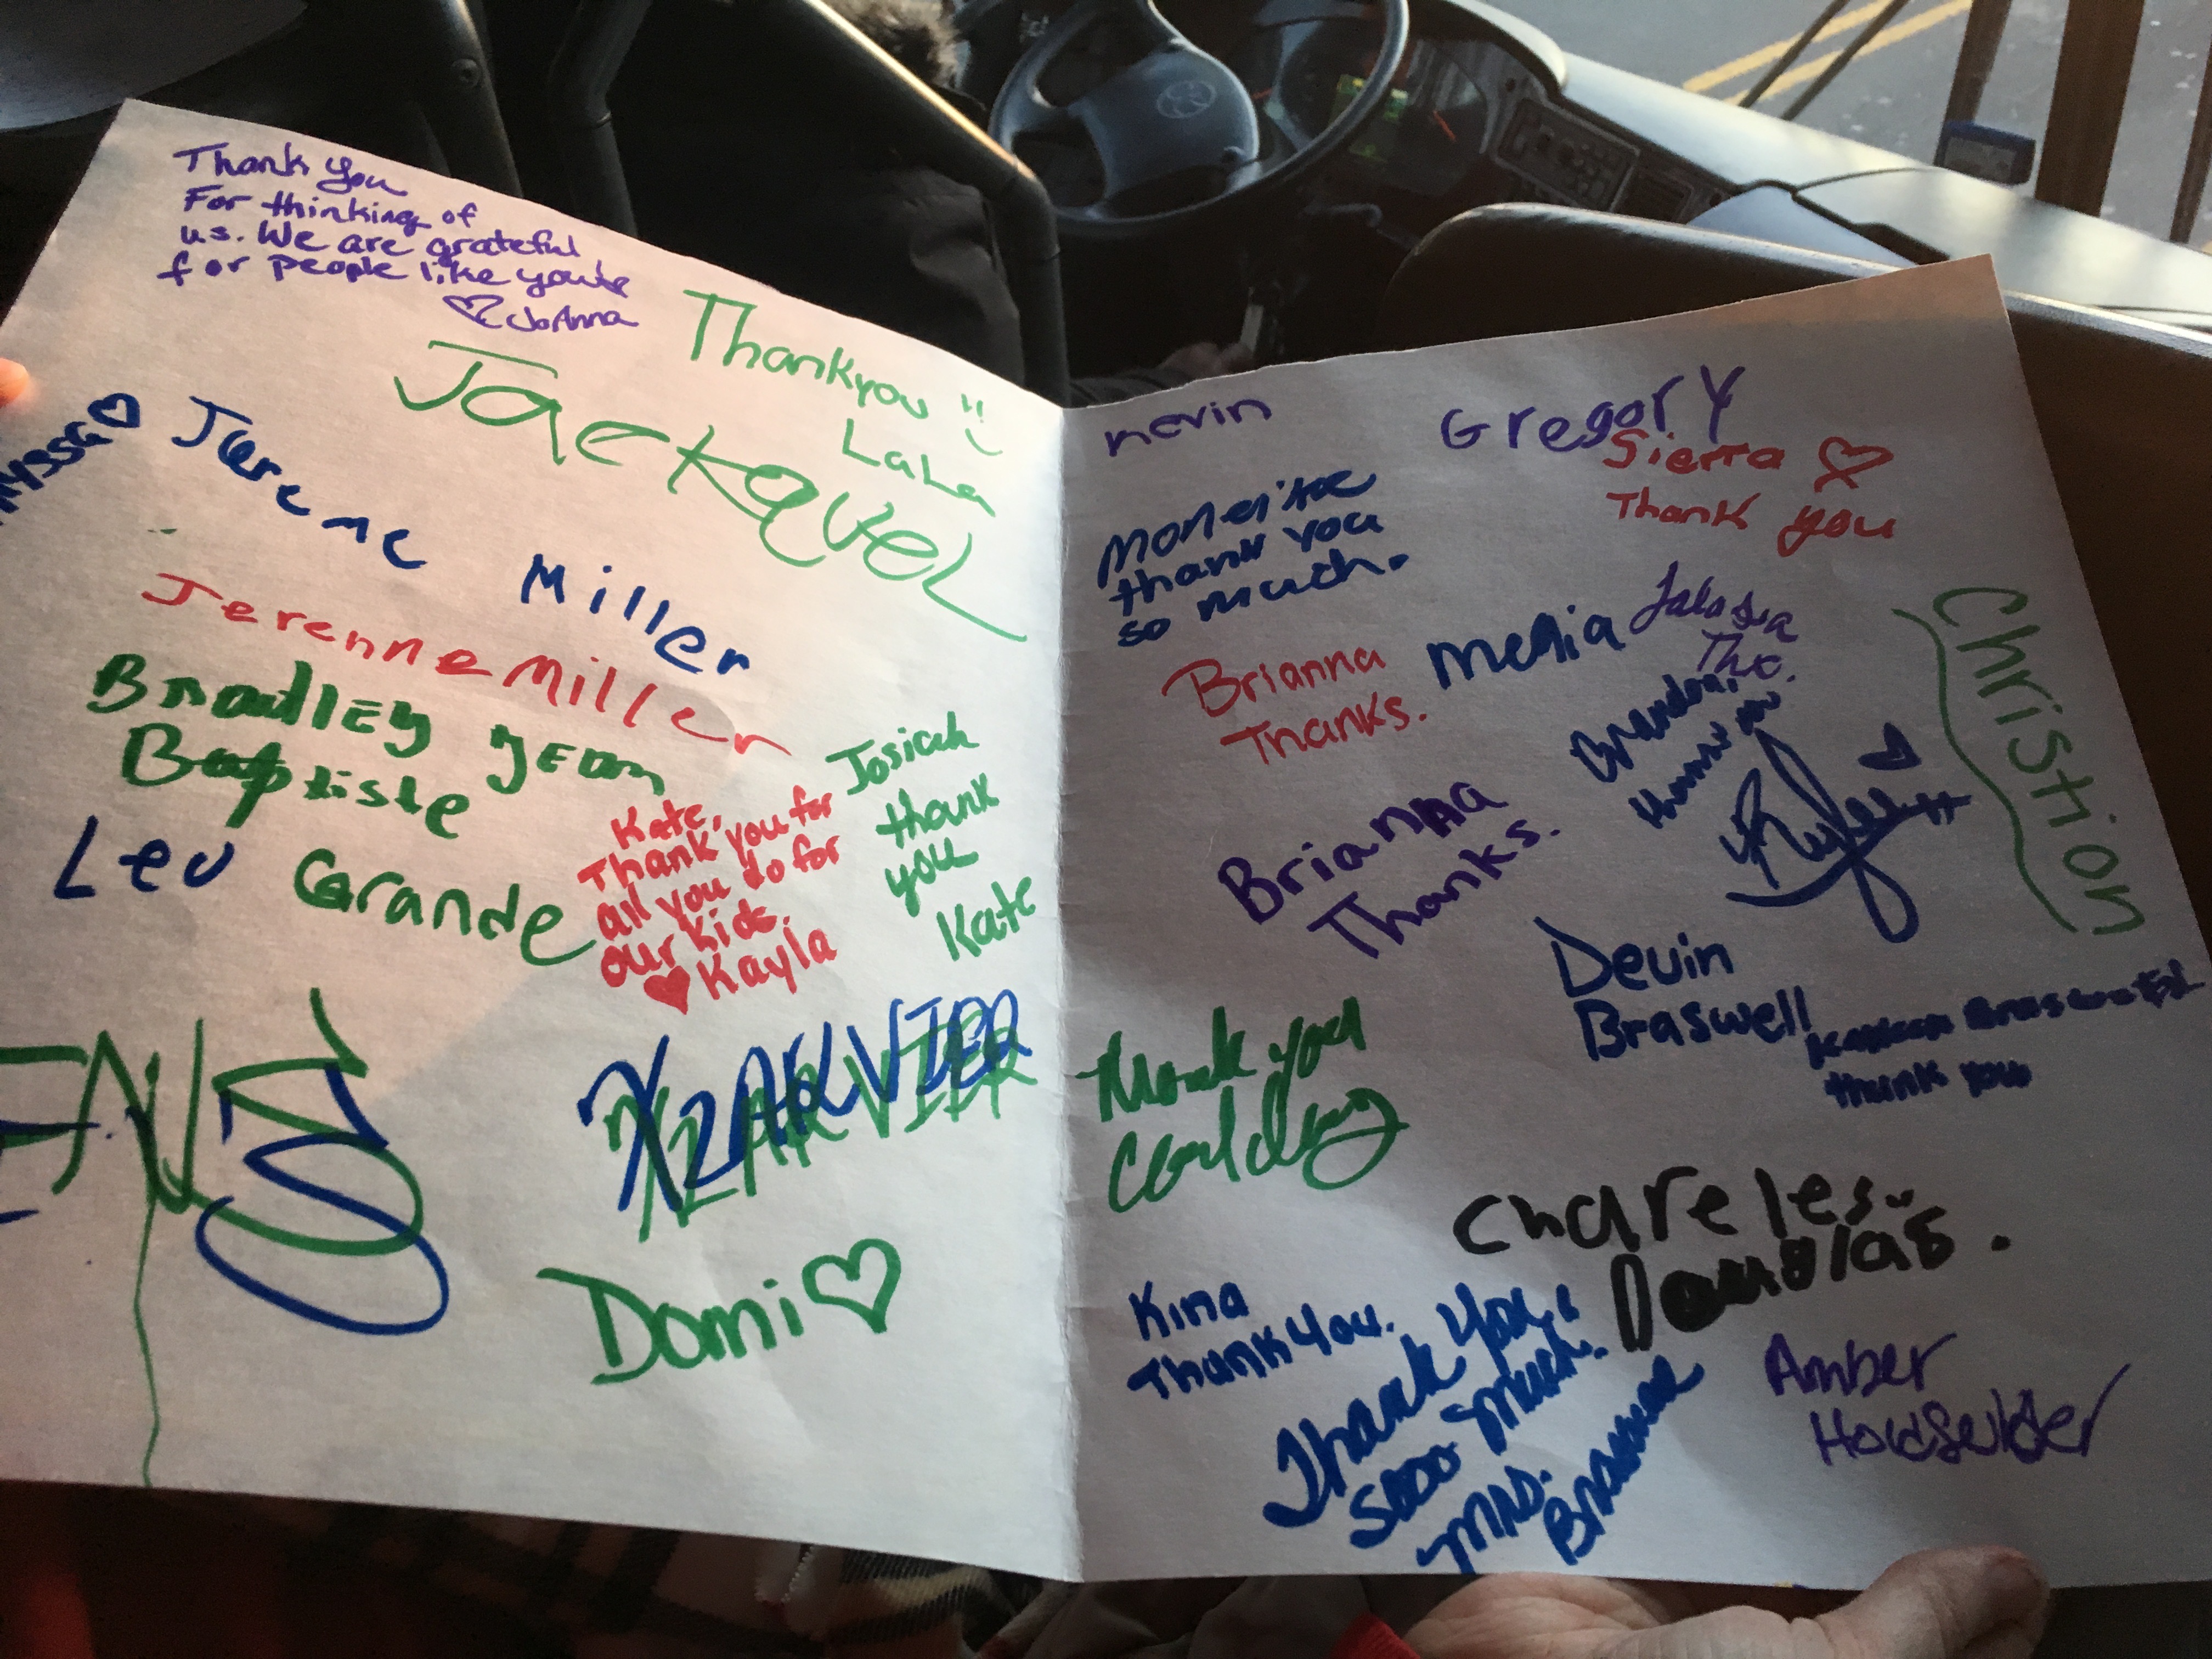 Thank you
For thinking of
us. We are grateful
for people like
JoAnna
Thankyou
LaLa
Jackquel
Jerene Miller
Jerenne Miller
Bradley Jean
Baptiste
Lev Grande
Kate,
Thank you for
all you do for
our kids.
Kayla
Josiah
thank
you
Kate
XZARVIER
Domi
nevin
Gregory
Sierra
Thank you
thank you
so much.
Brianna
Thanks.
media
Thx.
Christion
Brianna
Thanks.
Devin
Braswell
thank you
Thank you
Chareles
Kina
Thank you.
Thank you
Sooo much.
Mrs.
Amber